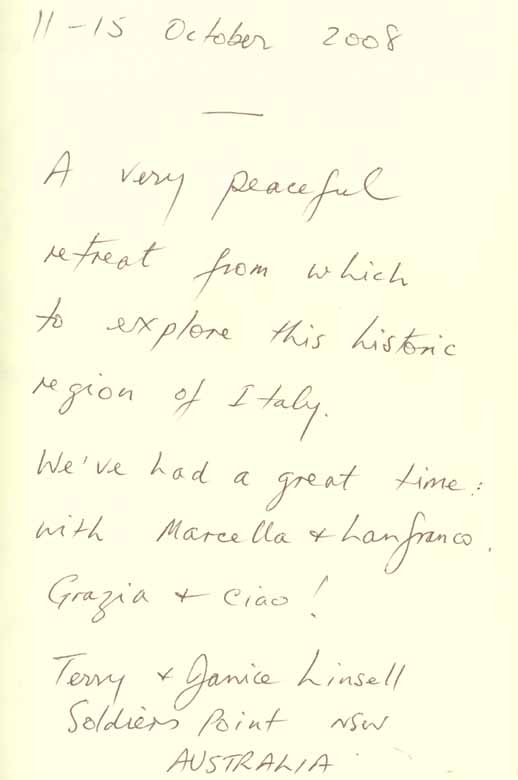 11-15 October 2008
A very peaceful
retreat from which
to explore this historic
region of Italy.
We've had a great time:
with Marcella & Lanfranco.
Grazia & Ciao!
Terry & Janice Linsell
Soldiers Point NSW
AUSTRALIA